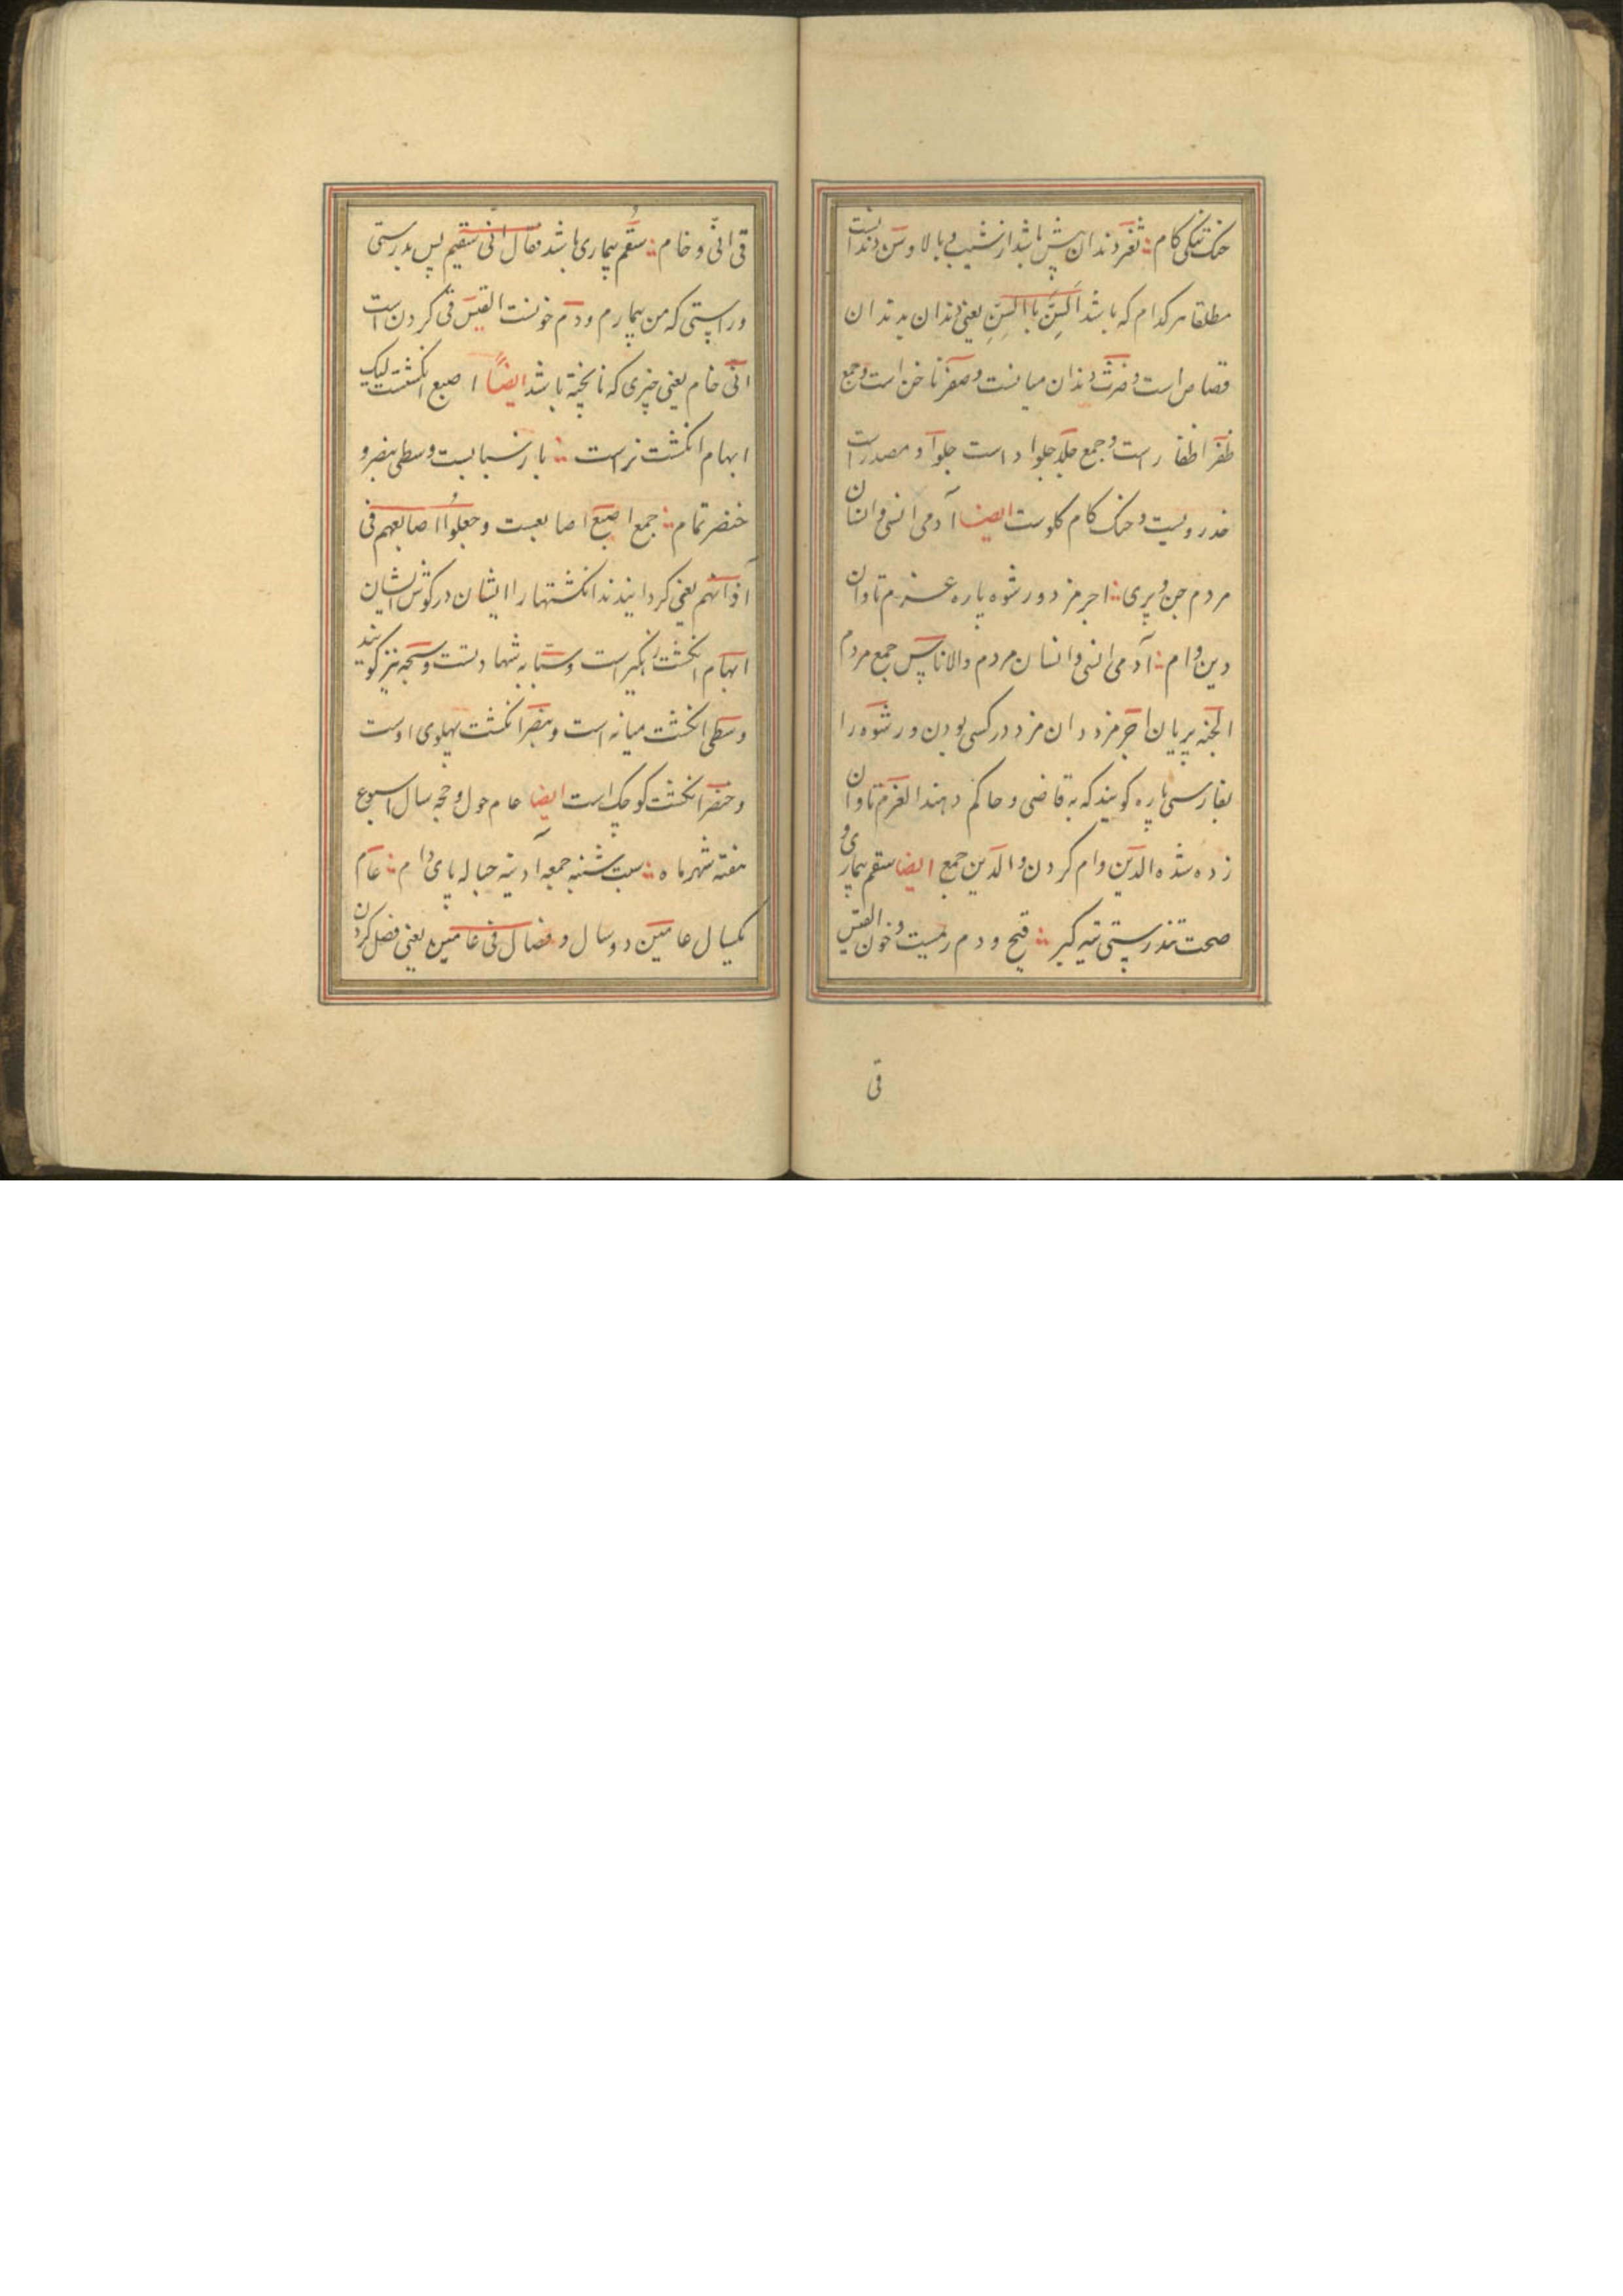 حنک تنکی کام ؞ ثغر دندان پیش باشد از نشیب و بالا و سن دندانست
مطلقا هر کدام که باشد اَلسِنَّ بِاالسِنِّ یعنی دندان بدندان
قصاص است و ضرث دندان میانست و صفر ناخن است و جمع
ظفر اظفار است و جمع جلد جلوا د است جلوآ د مصدر است
خدر رویست و حنک کام کلوست ایضا آدمی انسی و انسان
مردم جن و پری ؞ اجر مزد و رشوه پاره غرم تاوان
دین وام ؞ آدمی انسی و انسان مردم والاناس جمع مردم
الجنه پریان اجر مزد دان مزد در کسی بودن و رشوه را
بفارسی پاره کویند که به قاضی و حاکم دهند الغرم تاوان
زده شده الدین وام کردن و الدین جمع ایضا سقم بیماری و
صحت تندرستی تیه کبر ؞ قیح و دم ریمست و خون القیس
قی
قی انّی و خام ؞ سُقم بیماری باشد فقال انی سقیم پس بدرستی
و راستی که من بیمارم و دم خونست القیس قی کردن است
انّی خام یعنی چیزی که ناپخته باشد ایضاً اصبع انکشت لیک
ابهام انکشت نر است ؞ باز سبابست و سطی بنصر و
خنصر تمام ؞ جمع اصبع اصابعست و جعلُوا اصابعهم فی
آذانهم یعنی کردانیدند انکشتها را ایشان در کوش ایشان
ابهام انکشت زهکیر است و سبّابه شهادتست و سبحه نیز کویند
وسطی انکشت میانه است و بنصر انکشت پهلوی اوست
و خنصر انکشت کوچک است ایضا عام حول و حجه سال اسبوع
هفته شهر ماه ؞ سبت شنبه جمعه آدینه حباله پای دام ؞ عام
یکسال عامین دو سال و فصال فی عامین یعنی فصل کردن